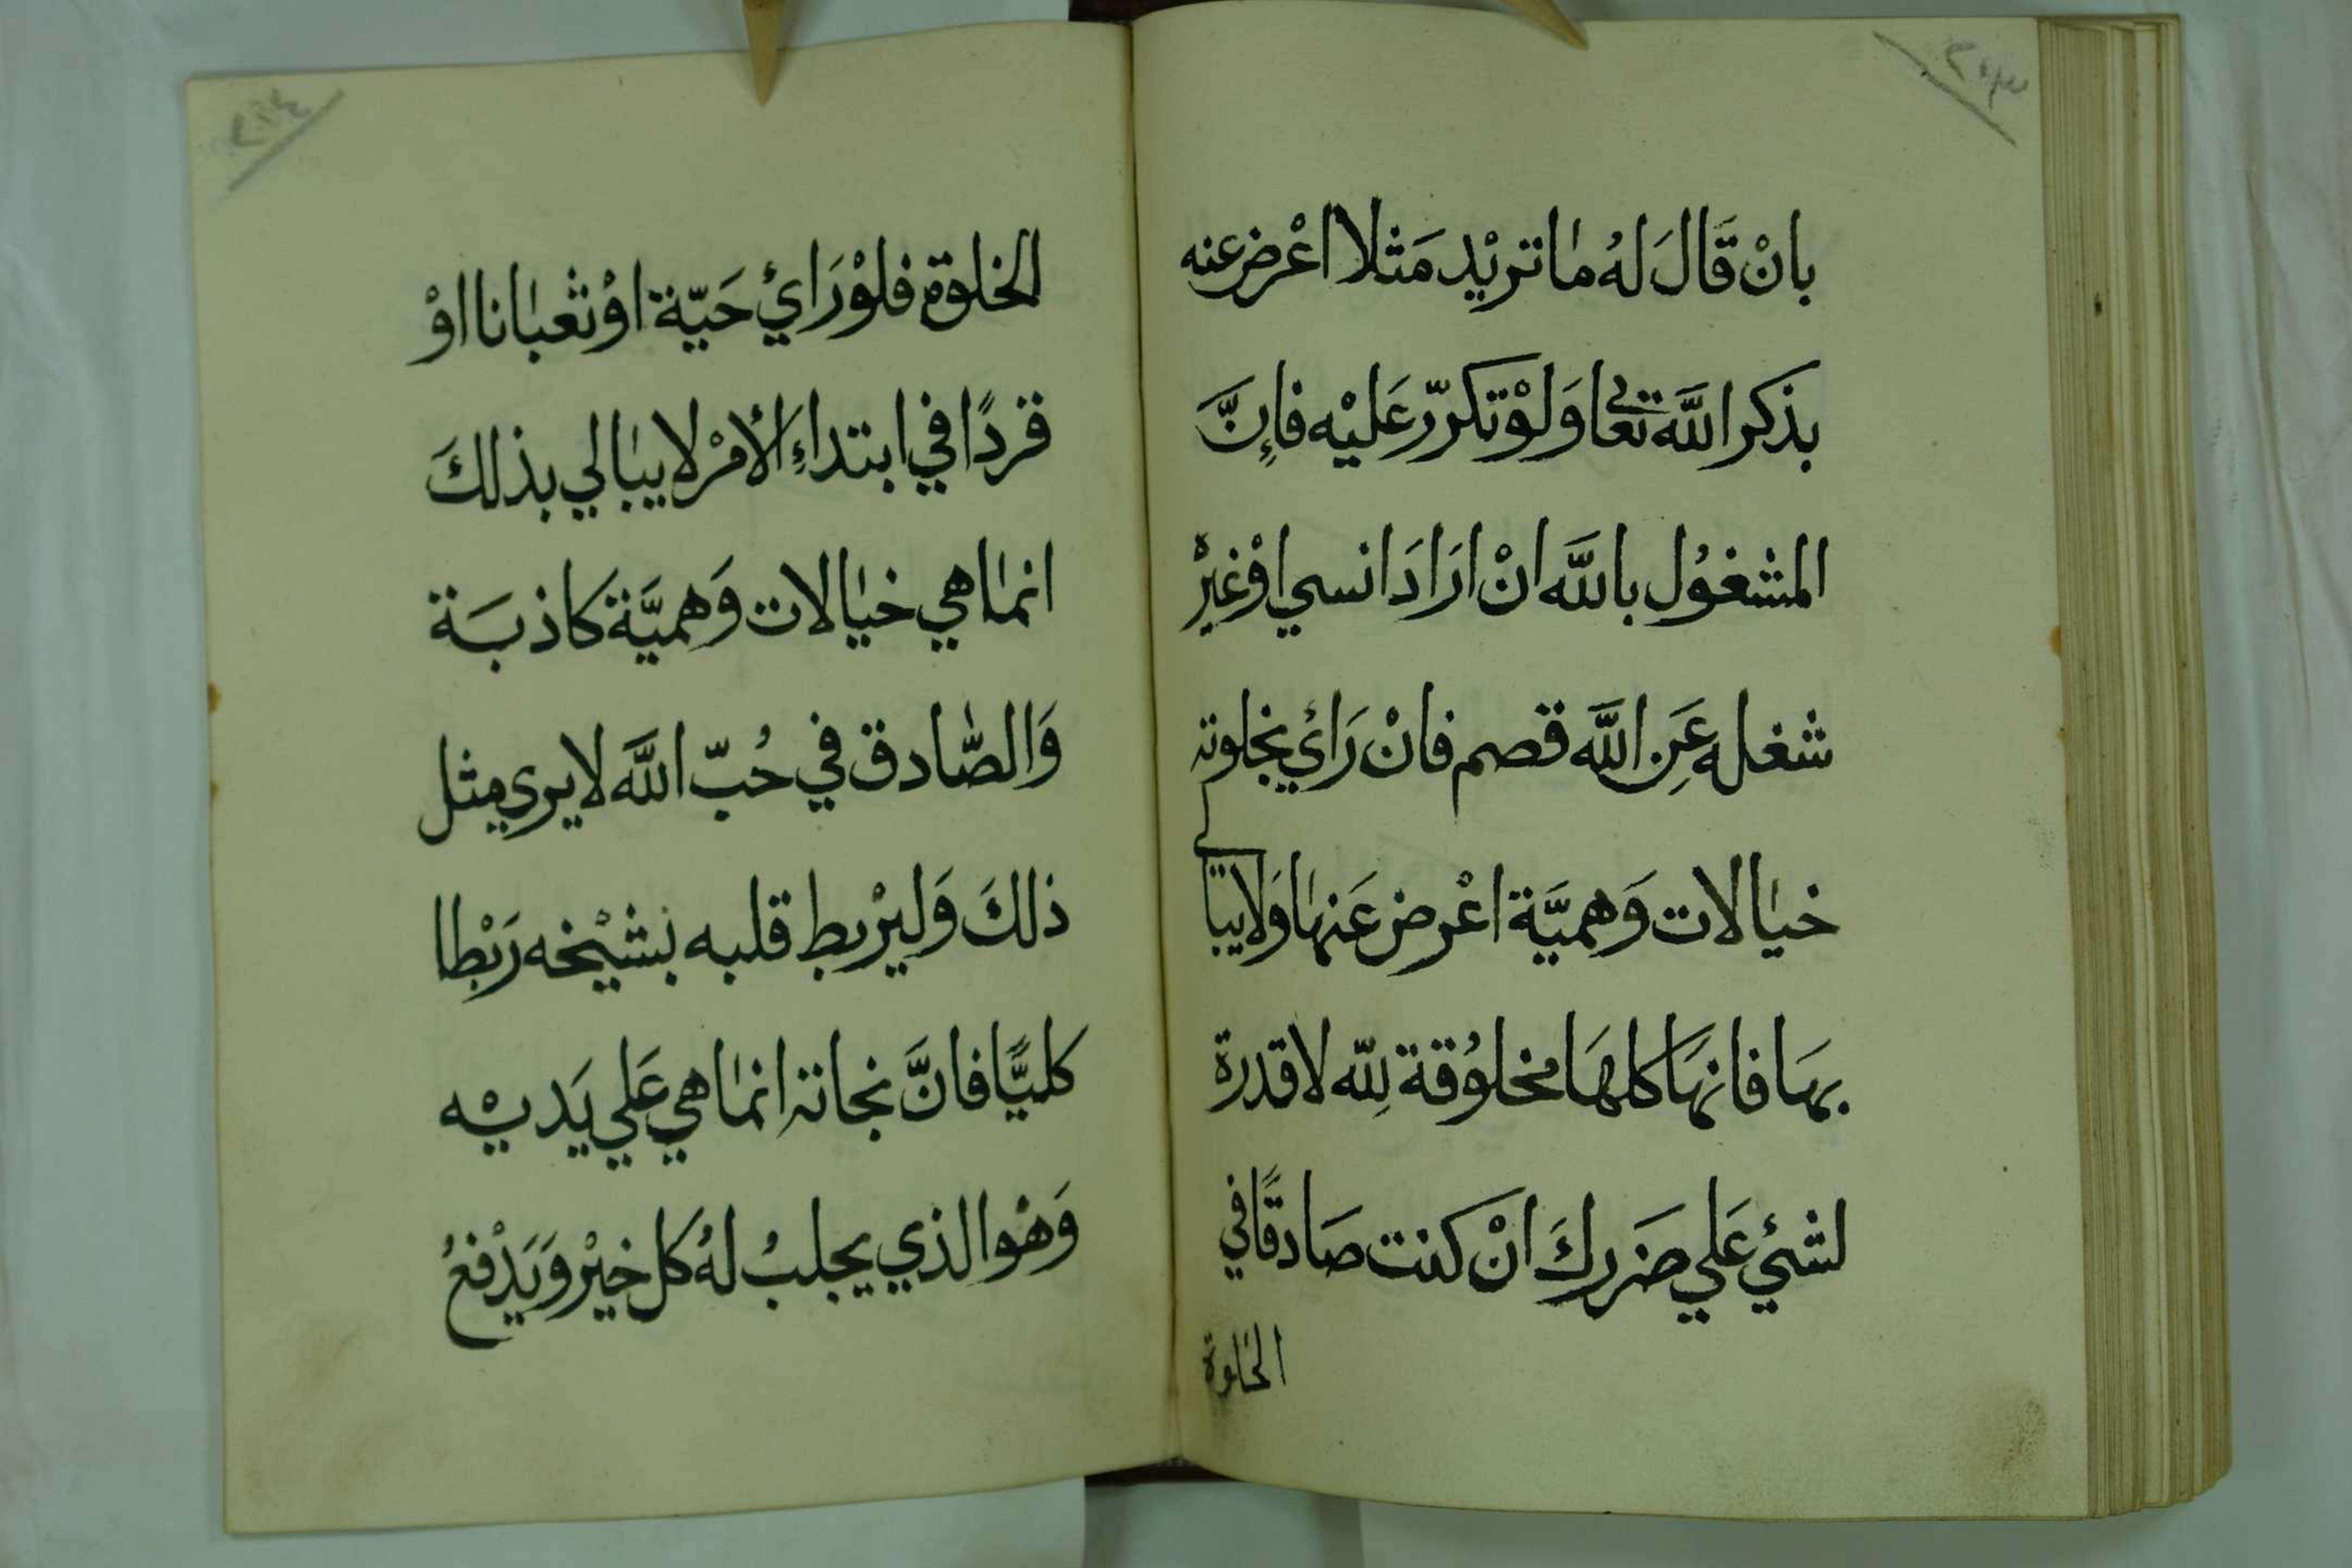 بانْ قَالَ لَهُ مَا تريْد مَثلا اعْرض عنه
بذكر اللَّه تعالى وَلَوْ تكرّر عَليْه فإنَّ
المشغوُل باللَّه انْ ارَادَ انسي اوْ غيرْه
شغله عَنِ اللَّه قصم فانْ رَائ بخلوته
خيالات وَهميَّة اعْرض عَنهَا وَلا يبالي
بهَا فانهَا كلهَا مخلوُقة لِلّه لا قدرة
لشئ عَلي ضَرركَ انْ كنت صَادقًا في
الخلوة
الخلوة فلوْ رَائ حَيّة اوْ ثعْبانا اوْ
قردًا في ابتداءِ الأمرْ لا يبالي بذلكَ
انما هي خيالات وَهميَّة كاذبَة
وَالصَّادق في حُبّ اللَّه لا يرى مثل
ذلكَ وَليرْبط قلبه بشيْخه رَبْطا
كليًّا فانَّ نجاته انما هي عَلي يَديْه
وَهُو الذي يجلبُ لهُ كل خيْر وَيَدْفعُ